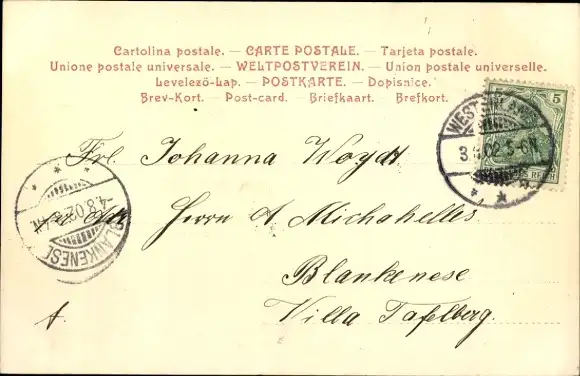 Cartolina postale. — CARTE POSTALE. — Tarjeta postale.
Unione postale universale. — WELTPOSTVEREIN. — Union postale universelle.
Levelező-Lap. — POSTKARTE. — Dopisnice.
Brev-Kort. — Post-card. — Briefkaart. — Brefkort.
5
3.8.02.5-6N
Frl. Johanna Woydt
4.8.02
BLANKENESE
Herrn A Michahelles
Blankenese
Villa Tafelberg.